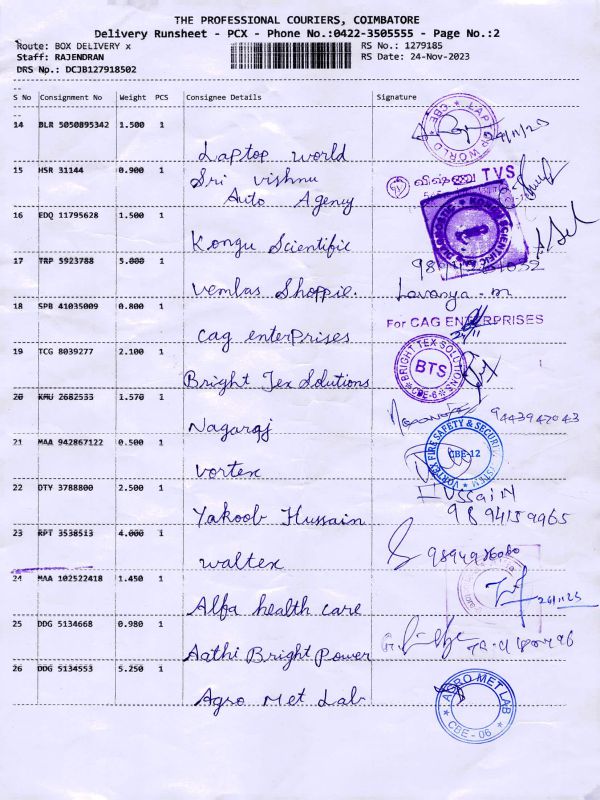 THE PROFESSIONAL COURIERS, COIMBATORE
Delivery Runsheet - PCX - Phone No.:0422-3505555 - Page No.:2
Route: BOX DELIVERY x RS No.: 1279185
Staff: RAJENDRAN RS Date: 24-Nov-2023
DRS No.: DCJB127918502
S No Consignment No Weight PCS Consignee Details Signature
14 BLR 5050895342 1.500 1
Laptop world
LAPTOP WORLD ★ CBE ★
15 HSR 31144 0.900 1
Sri vishnu
Auto Agency
விஷ்ணு TVS
16 EDQ 11795628 1.500 1
Kongu Scientific
17 TRP 5923788 5.000 1
Vemlas Shoppie. Lavanya - m
18 SPB 41035009 0.800 1
For CAG ENTERPRISES
Cag enterPrises
24/11
19 TCG 8039277 2.100 1
★ BRIGHT TEX SOLUTIONS ★
BTS
CBE-6
Bright Tex Solutions
20 KMU 2682533 1.570 1
Nagaraj 9443947043
21 MAA 942867122 0.500 1
VORTEX FIRE SAFETY & SECURITY SYSTEM
CBE-12
Vortex
22 DTY 3788800 2.500 1
HUSSAIN
Yakoob Hussain 9894159965
23 RPT 3538513 4.000 1
Waltex
24 MAA 102522418 1.450 1
Alfa health care
25 DDG 5134668 0.980 1
Aathi Bright Power
26 DDG 5134553 5.250 1
Agro Met Lab
AGRO MET LAB
★ CBE - 06 ★